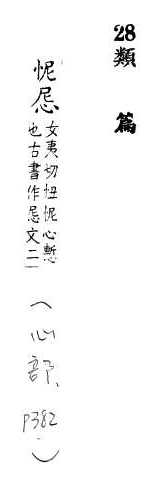 28類 篇
怩㞾 女夷切忸怩心慙
也古書作㞾文二
(心部, P382)